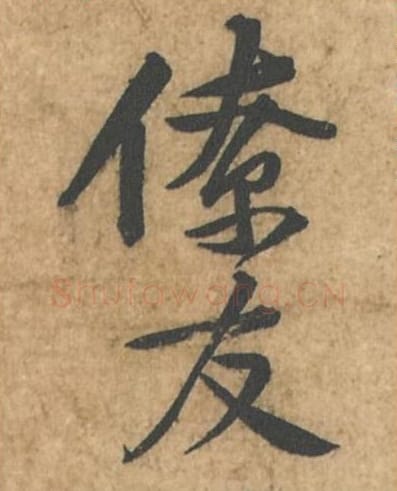 僚友
Shufawang.CN